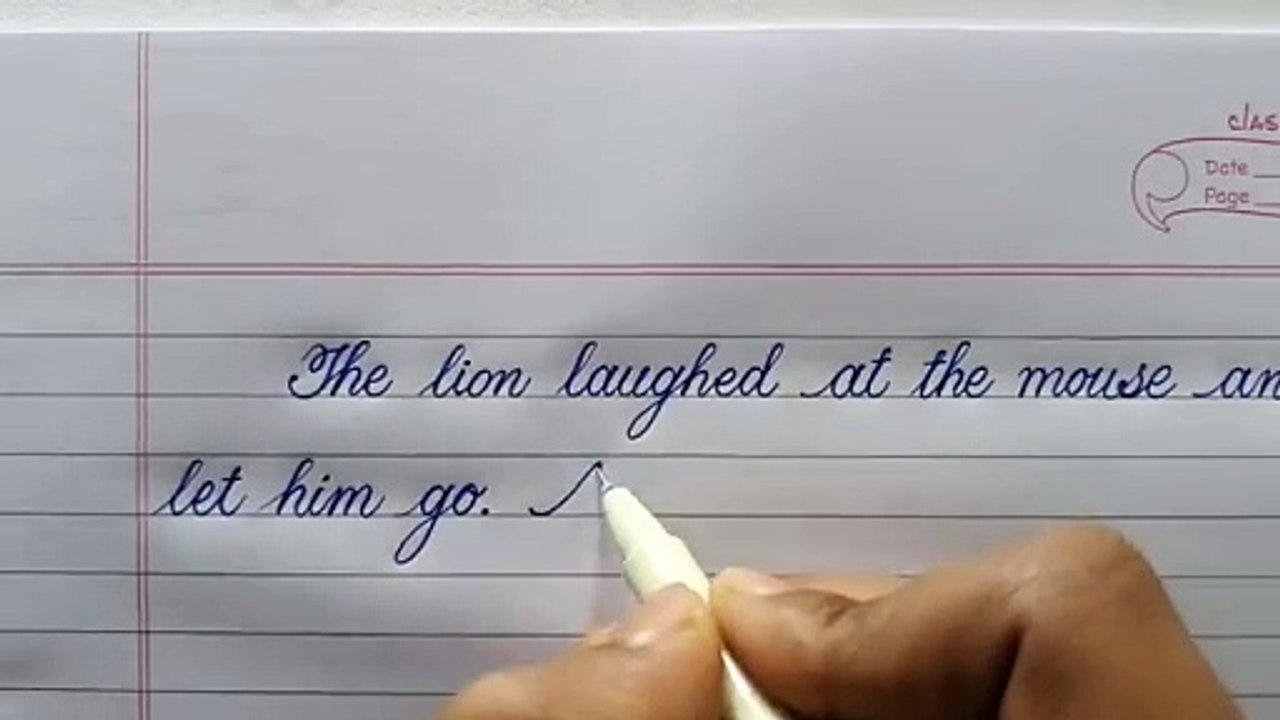 clas
Date
Page
The lion laughed at the mouse an
let him go.